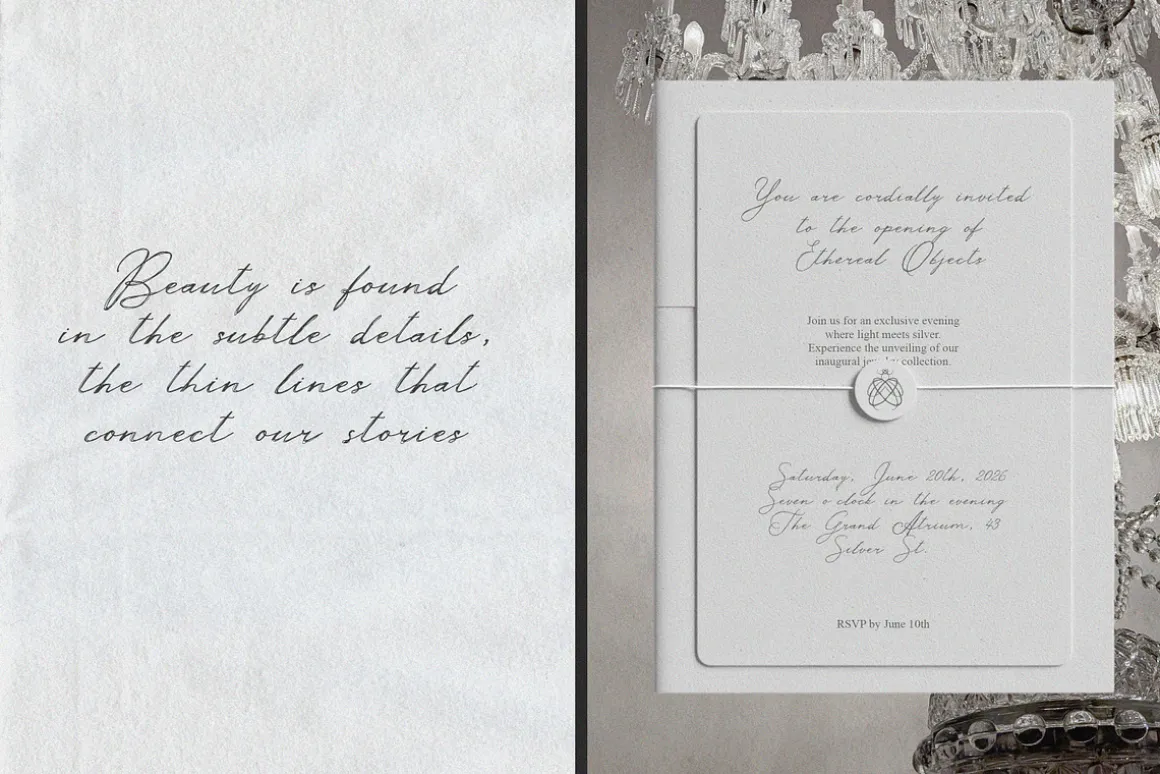 Beauty is found
in the subtle details,
the thin lines that
connect our stories
You are cordially invited
to the opening of
Ethereal Objects
Join us for an exclusive evening
where light meets silver.
Experience the unveiling of our
inaugural jewelry collection.
Saturday, June 20th, 2026
Seven o'clock in the evening
The Grand Atrium, 43
Silver St.
RSVP by June 10th